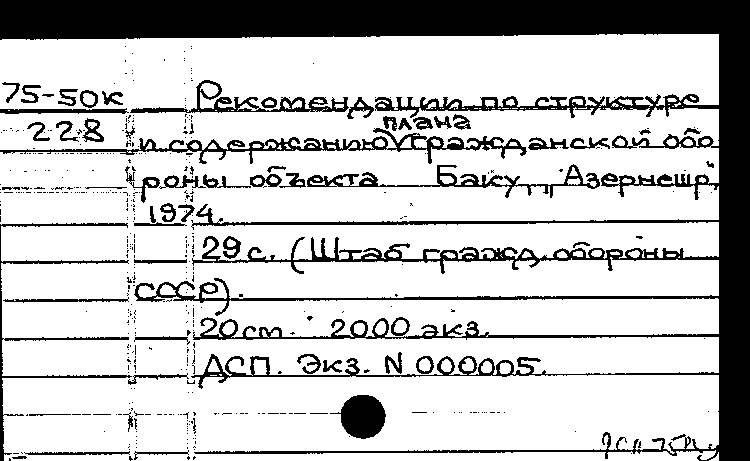 75-50к Рекомендации по структуре
228 плана
и содержанию гражданской обо
роны объекта Баку, „Азернешр",
1974.
29 с. (Штаб гражд. обороны
СССР).
20 см. 2000 экз.
ДСП. Экз. N 000005.